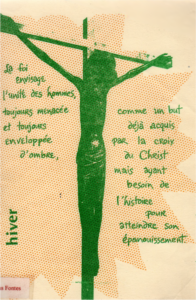 La foi
envisage
l'unité des hommes,
toujours menacée
et toujours
enveloppée
d'ombre,
comme un but
déjà acquis
par la croix
du Christ
mais ayant
besoin de
l'histoire
pour
atteindre son
épanouissement.
hiver